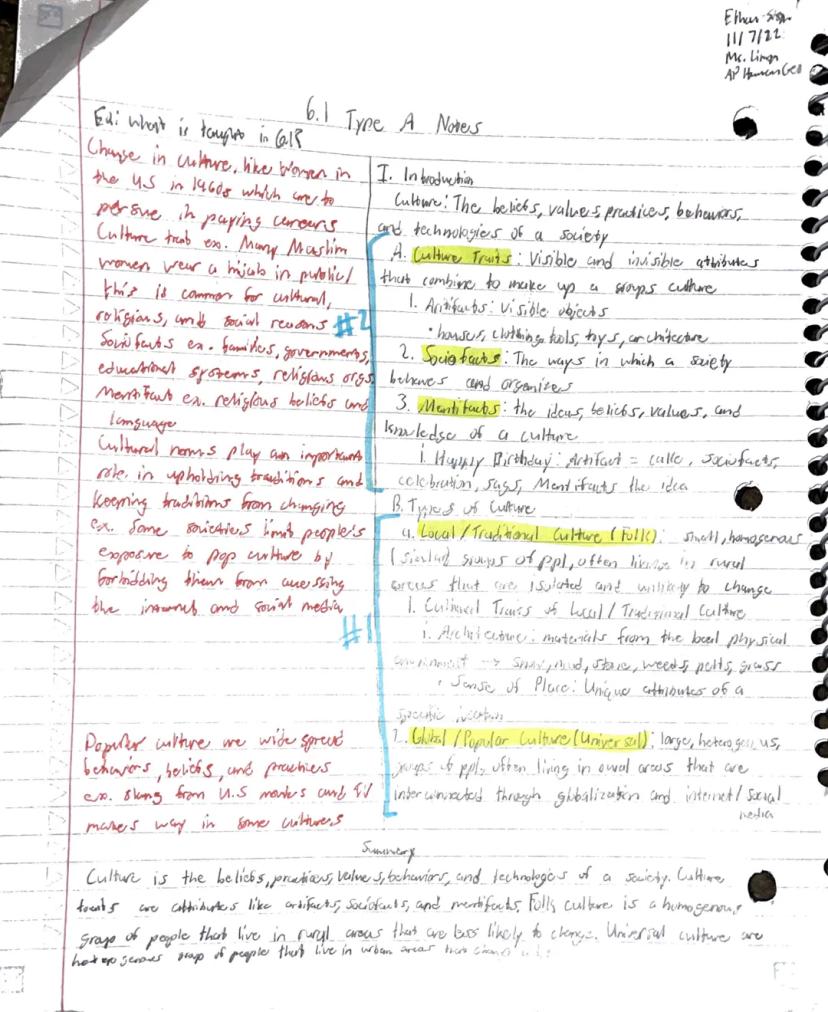 Ethan
11/7/22
Mr. Limon
AP Human Geo
6.1 Type A Notes
EQ: What is taught in 6.1?
Change in culture, like Women in
the US in 1960s which are to
persue in paying careers
Culture trait ex. Many Muslim
women wear a hijab in public/
this is common for cultural,
religious, and social reasons
#2
Sociofacts ex. families, governments,
educational systems, religious orgs
Mentifact ex. religious beliefs and
language
Cultural norms play an important
role in upholding traditions and
keeping traditions from changing
ex. Some societies limit people's
exposure to pop culture by
forbidding them from accessing
the internet and social media
#1
Popular culture are wide spread
behaviors, beliefs, and practices
ex. slang from U.S movies and TV
makes way in some cultures
I. Introduction
Culture: The beliefs, values, practices, behaviors,
and technologies of a society
A. Culture Traits: Visible and invisible attributes
that combine to make up a groups culture
1. Artifacts: Visible objects
• houses, clothing, tools, toys, architecture
2. Sociofacts: The ways in which a society
behaves and organizes
3. Mentifacts: the ideas, beliefs, values, and
knowledge of a culture
i. Happy Birthday: Artifact = cake, sociofacts,
celebration, Mentifacts the idea
B. Types of Culture
a. Local/Traditional Culture (Folk): small, homogenous
(similar) groups of ppl, often living in rural
areas that are isolated and unlikely to change
1. Cultural Traits of Local/Traditional Culture
i. Architecture: materials from the local physical
environment → snow, mud, stone, weeds, pelts, grass
• Sense of Place: Unique attributes of a
specific location
2. Global/Popular Culture (Universal): large, heterogenous,
groups of ppl, often living in areas that are
interconnected through globalization and internet/social
media
Summary
Culture is the beliefs, practices, values, behaviors, and technologies of a society. Culture
traits are attributes like artifacts, sociofacts, and mentifacts. Folk culture is a homogenous
group of people that live in rural areas that are less likely to change. Universal culture are
heterogenous group of people that live in urban areas that change